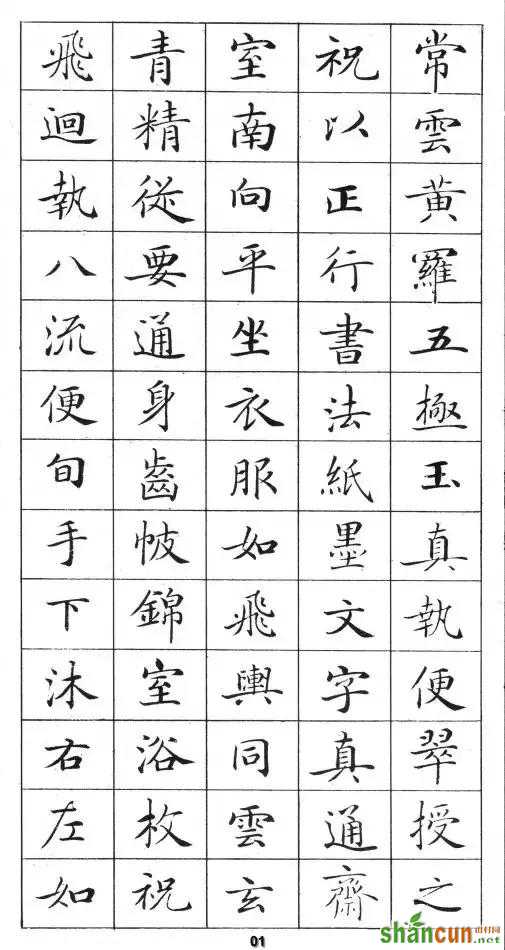 常雲黃羅五極玉真執便翠授之
祝以正行書法紙墨文字真通齋
室南向平坐衣服如飛輿同雲玄
青精從要通身齒帔錦室浴枚祝
飛迴執八流便旬手下沐右左如
01
shancun
山村网
.net